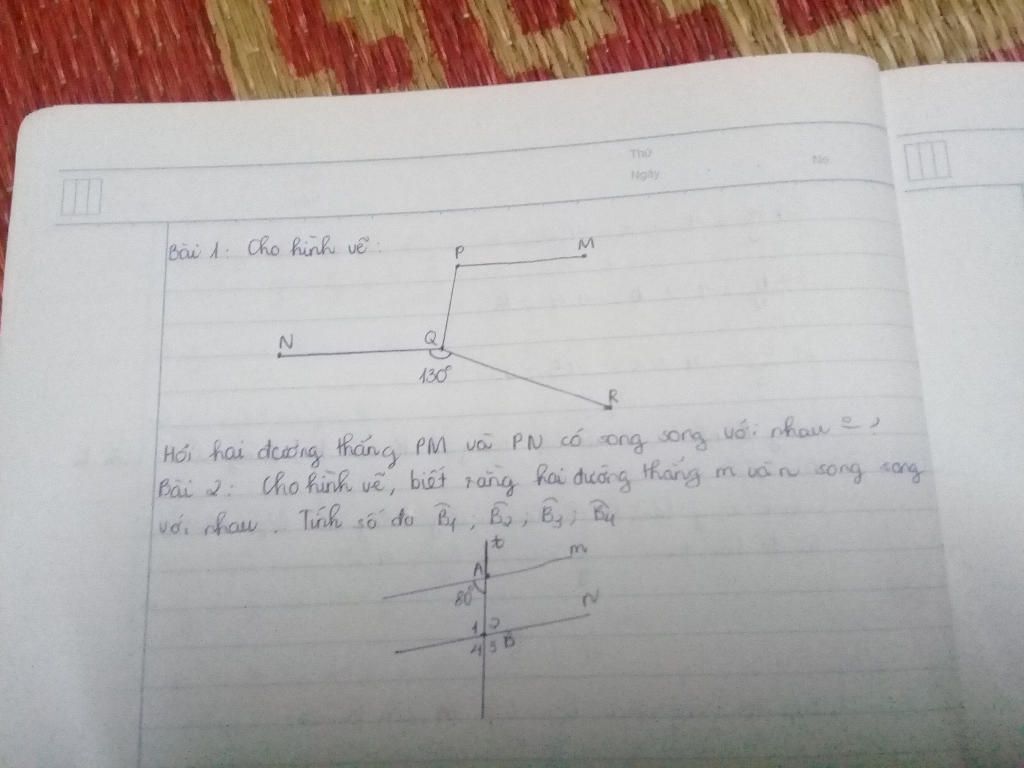 Thứ
No.
Ngày
Bài 1: Cho hình vẽ:
P
M
N
Q
130°
R
Hỏi hai đường thẳng PM và PN có song song với nhau ?
Bài 2: Cho hình vẽ, biết rằng hai đường thẳng m và n song song
với nhau. Tính số đo B̂1; B̂2; B̂3; B̂4
t
m
A
80°
N
1 2
4 3 B